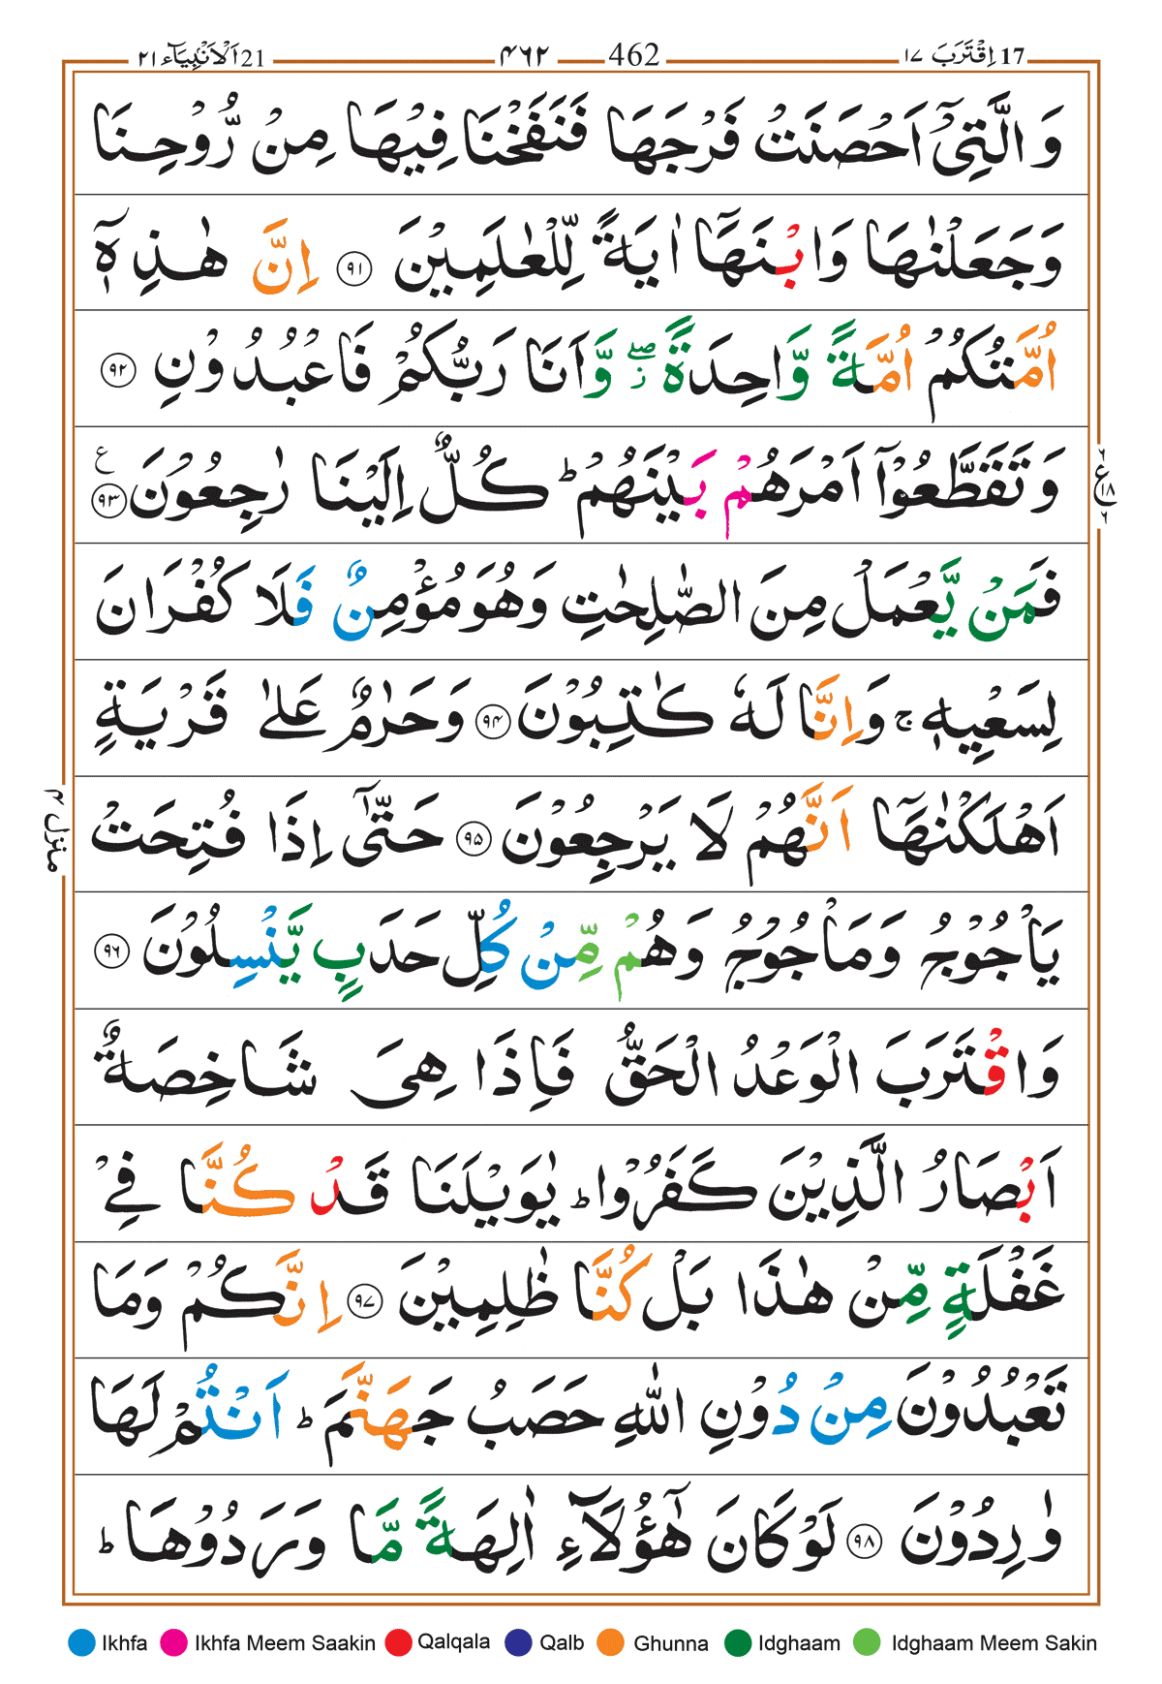 17 اِقْتَرَبَ ١٧ 462 ۴۶۲ 21 اَلْاَنْبِيَآء ٢١
وَ الَّتِیْۤ اَحْصَنَتْ فَرْجَهَا فَنَفَخْنَا فِیْهَا مِنْ رُّوْحِنَا
وَجَعَلْنٰهَا وَابْنَهَاۤ اٰیَةً لِّلْعٰلَمِیْنَ ۹۱ اِنَّ هٰذِهٖۤ
اُمَّتُكُمْ اُمَّةً وَّاحِدَةً ۖز وَّاَنَا رَبُّكُمْ فَاعْبُدُوْنِ ۹۲
وَتَقَطَّعُوْۤا اَمْرَهُمْ بَیْنَهُمْ ؕ كُلٌّ اِلَیْنَا رٰجِعُوْنَ ۹۳ ع
ع ۱۸
فَمَنْ یَّعْمَلْ مِنَ الصّٰلِحٰتِ وَهُوَ مُؤْمِنٌ فَلَا كُفْرَانَ
لِسَعْیِهٖ ۚ وَاِنَّا لَهٗ كٰتِبُوْنَ ۹۴ وَحَرٰمٌ عَلٰی قَرْیَةٍ
اَهْلَكْنٰهَاۤ اَنَّهُمْ لَا یَرْجِعُوْنَ ۹۵ حَتّٰۤی اِذَا فُتِحَتْ
منزل ۴
یَاْجُوْجُ وَمَاْجُوْجُ وَهُمْ مِّنْ كُلِّ حَدَبٍ یَّنْسِلُوْنَ ۹۶
وَاقْتَرَبَ الْوَعْدُ الْحَقُّ فَاِذَا هِیَ شَاخِصَةٌ
اَبْصَارُ الَّذِیْنَ كَفَرُوْا ؕ یٰوَیْلَنَا قَدْ كُنَّا فِیْ
غَفْلَةٍ مِّنْ هٰذَا بَلْ كُنَّا ظٰلِمِیْنَ ۹۷ اِنَّكُمْ وَمَا
تَعْبُدُوْنَ مِنْ دُوْنِ اللّٰهِ حَصَبُ جَهَنَّمَ ؕ اَنْتُمْ لَهَا
وٰرِدُوْنَ ۹۸ لَوْ كَانَ هٰۤؤُلَآءِ اٰلِهَةً مَّا وَرَدُوْهَا ؕ
Ikhfa Ikhfa Meem Saakin Qalqala Qalb Ghunna Idghaam Idghaam Meem Sakin